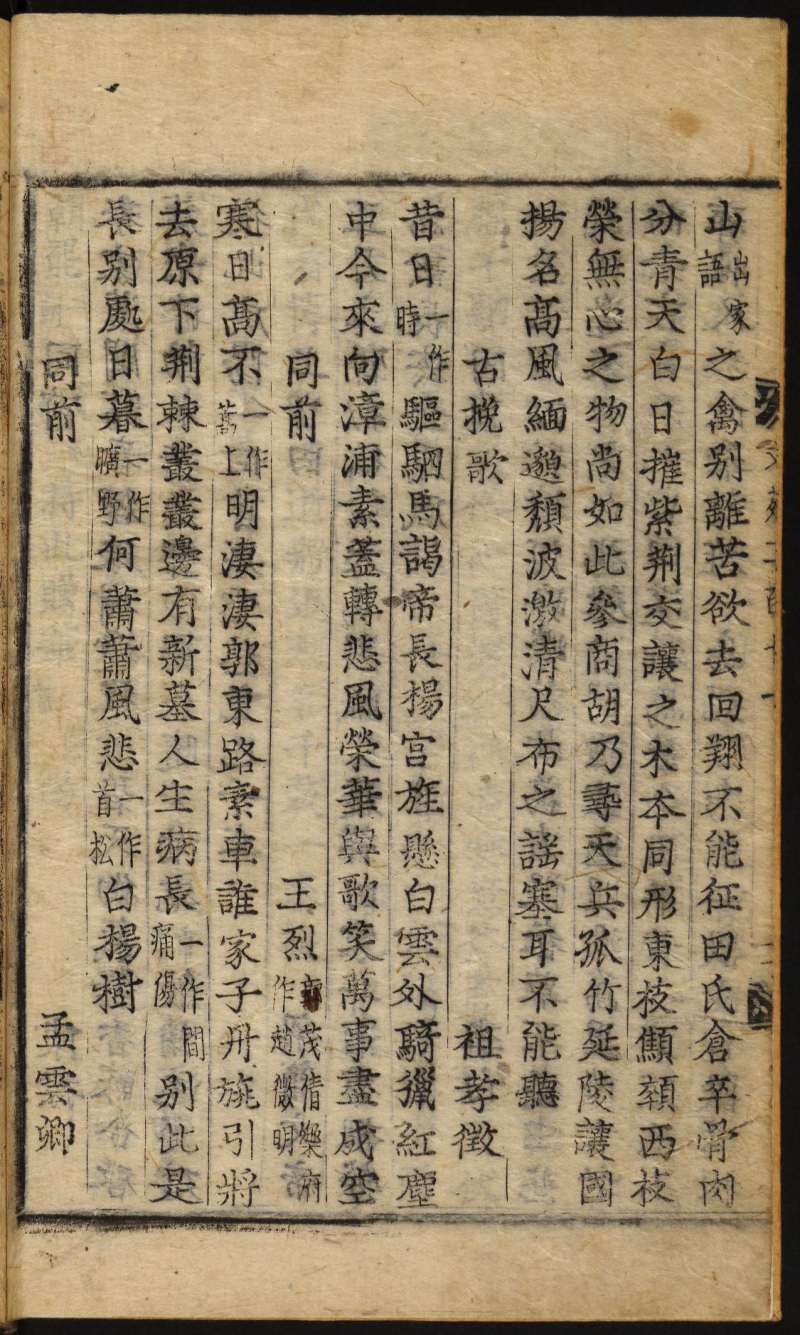 山出家語之禽别離苦欲去回翔不能征田氏倉卒骨肉
分青天白日摧紫荆交讓之木本同形東枝顦顇西枝
榮無心之物尚如此參商胡乃尋天兵孤竹延陵讓國
揚名髙風緬邈頽波激清尺布之謡塞耳不能聽
古挽歌 祖孝徴
昔日一作時驅駟馬謁帝長楊宫旌懸白雲外騎獵紅塵
中今來向漳浦素葢轉悲風榮華與歌笑萬事盡成空
同前 王烈郭茂倩樂府作趙微明
寒日髙不一作蒿上明淒淒郭東路素車誰家子丹旐引將
去原下荆棘叢叢邊有新墓人生病長一作間痛傷别此是
長别處日暮一作曠野何蕭蕭風悲一作首松白楊樹
同前 孟雲卿